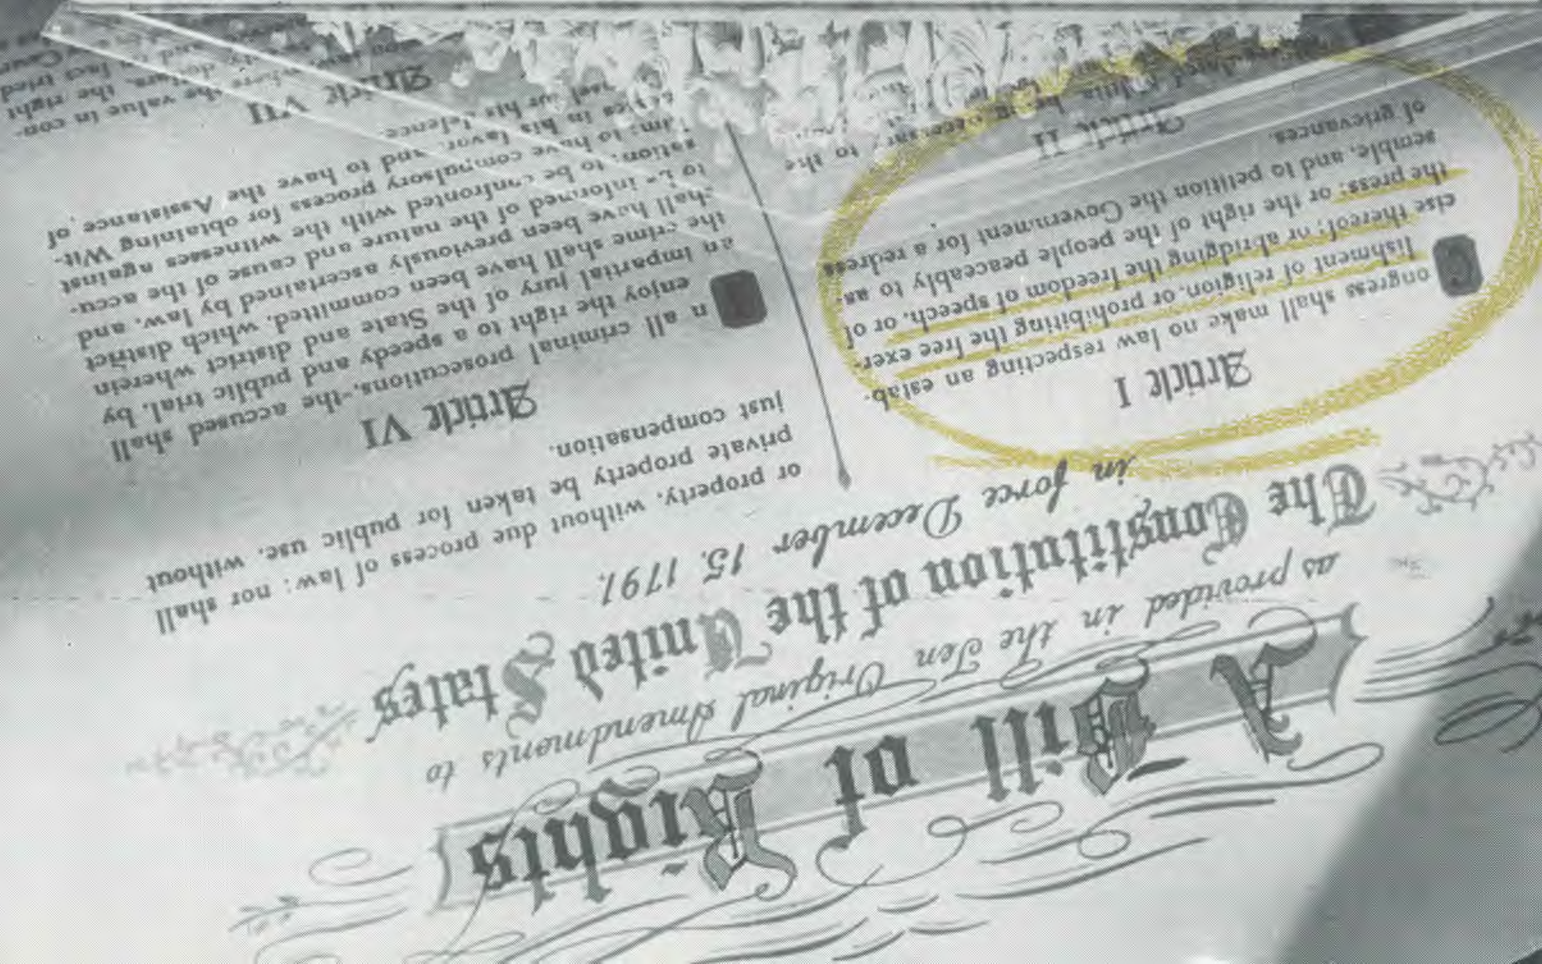 A Bill of Rights
as provided in the Ten Original Amendments to
The Constitution of the United States
in force December 15, 1791.
Article I
Congress shall make no law respecting an estab-
lishment of religion, or prohibiting the free exer-
cise thereof; or abridging the freedom of speech, or of
the press; or the right of the people peaceably to as-
semble, and to petition the Government for a redress
of grievances.
Article II
being necessary to the
or property, without due process of law; nor shall
private property be taken for public use, without
just compensation.
Article VI
n all criminal prosecutions, the accused shall
enjoy the right to a speedy and public trial, by
an impartial jury of the State and district wherein
the crime shall have been committed, which district
shall have been previously ascertained by law, and
to be informed of the nature and cause of the accu-
sation; to be confronted with the witnesses against
him; to have compulsory process for obtaining Wit-
in his favor, and to have the Assistance of
his defence.
Article VII
the value in con-
the right
fact tried